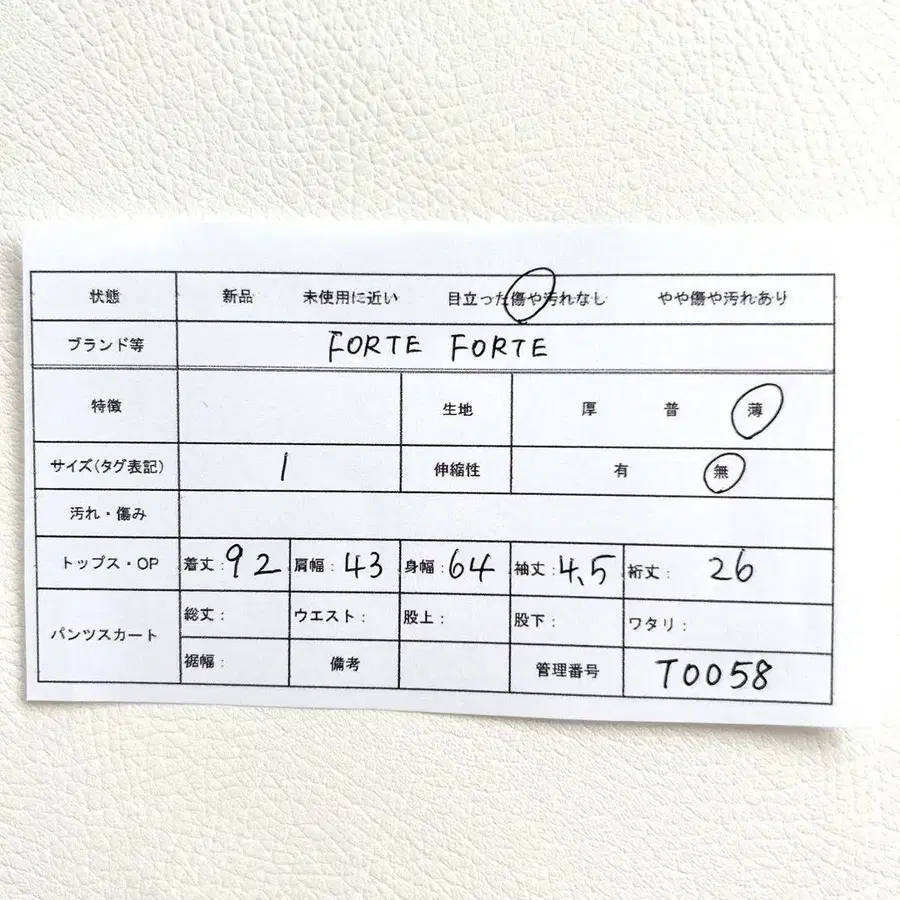 状態 新品 未使用に近い 目立った傷や汚れなし やや傷や汚れあり
ブランド等 FORTE FORTE
特徴 生地 厚 普 薄
サイズ(タグ表記) 1 伸縮性 有 無
汚れ・傷み
トップス・OP 着丈:92 肩幅:43 身幅:64 袖丈:4.5 裄丈: 26
パンツスカート 総丈: ウエスト: 股上: 股下: ワタリ:
裾幅: 備考 管理番号 T0058